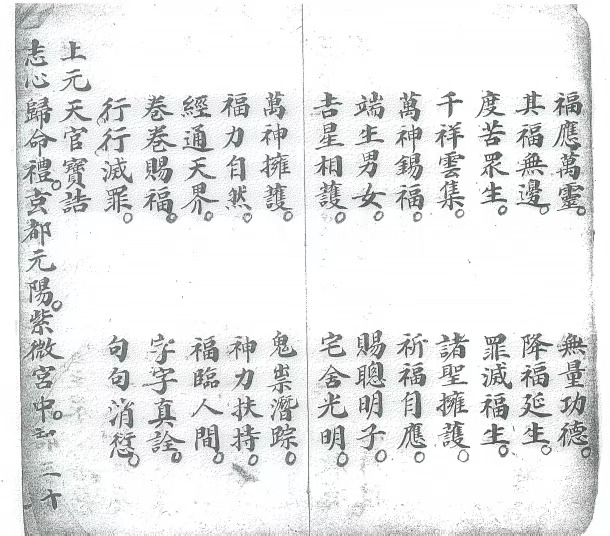 福應萬靈。 無量功德。
其福無邊。 降福延生。
度苦眾生。 罪滅福生。
千祥雲集。 諸聖擁護。
萬神錫福。 祈福自應。
端生男女。 賜聰明子。
吉星相護。 宅舍光明。
萬神擁護。 鬼祟潛踪。
福力自然。 神力扶持。
經通天界。 福臨人間。
卷卷賜福。 字字真詮。
行行滅罪。 句句消愆。
上元天官寶誥
志心歸命禮。玄都元陽。紫微宮中。部三十